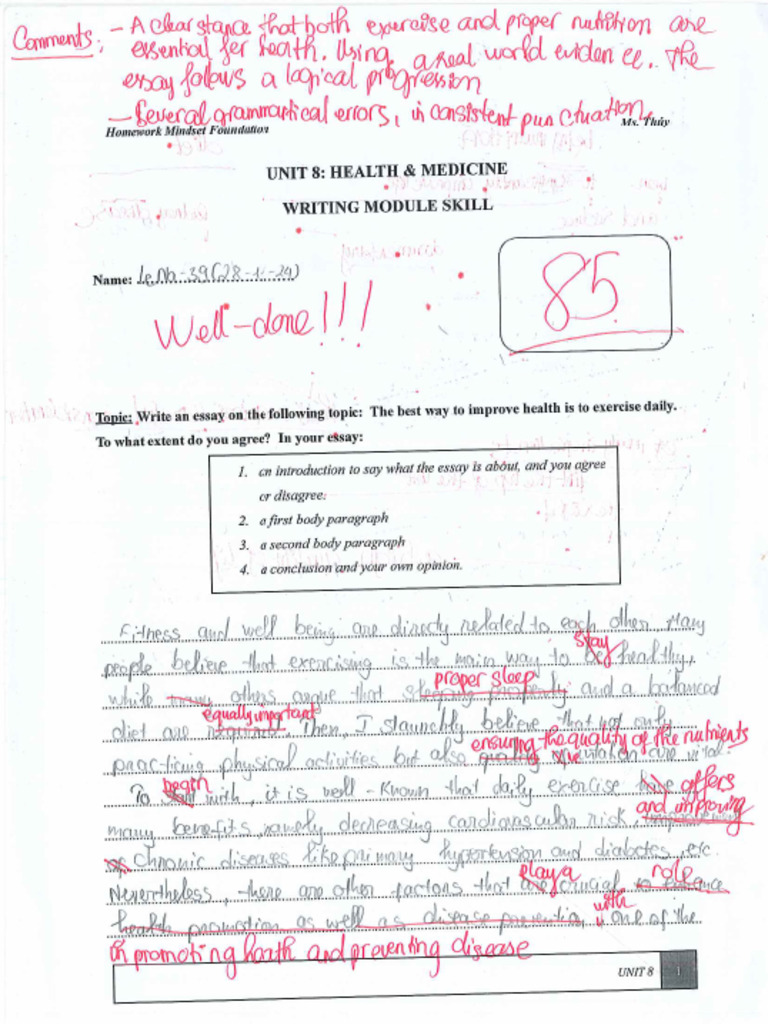 Comments: - A clear stance that both exercise and proper nutrition are
essential for heath. Using a real world evidence. The
essay follows a logical progression
- Several grammartical errors, in consistent punctuation.
Homework Mindset Foundation Ms. Thúy
UNIT 8: HEALTH & MEDICINE
WRITING MODULE SKILL
Name:
85
Well-done!!!
Topic: Write an essay on the following topic: The best way to improve health is to exercise daily.
To what extent do you agree? In your essay:
1. an introduction to say what the essay is about, and you agree
or disagree.
2. a first body paragraph
3. a second body paragraph
4. a conclusion and your own opinion.
Fitness and well being are directly related to each other. Many
stay
people believe that exercising is the main way to be healthy,
proper sleep
while many others argue that sleeping properly and a balanced
equally important
diet are required. Then, I staunchly believe that not only
ensuring the quality of the nutrients
practicing physical activities but also quality
begin
To start with, it is well-known that daily exercise have offers
and improving
many benefits, namely decreasing cardiovascular risk, improvement
of chronic diseases like primary hypertension and diabetes, etc.
play a role
Nevertheless, there are other factors that are crucial to enhance
with
health promotion as well as disease prevention, one of the
in promoting heath and preventing disease
UNIT 8 1